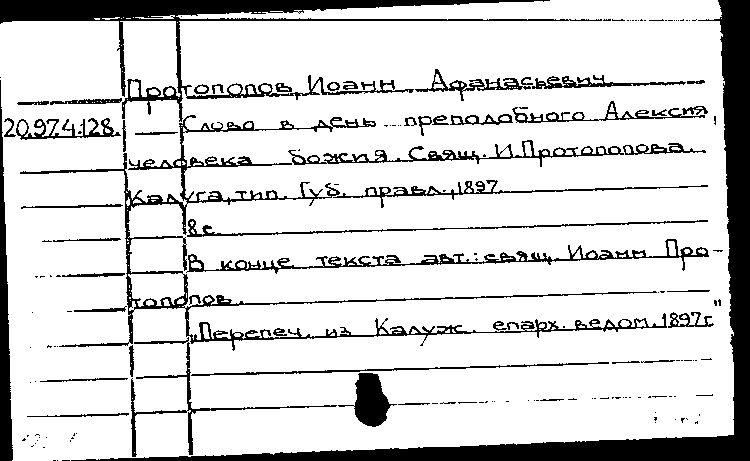 Протопопов, Иоанн Афанасьевич
20.97.4.128. — Слово в день преподобного Алексия,
человека божия. Свящ. И. Протопопова.
Калуга, тип. Губ. правл., 1897.
8 с.
В конце текста авт.: свящ. Иоанн Про-
топопов.
„Перепеч. из Калуж. епарх. ведом. 1897г."